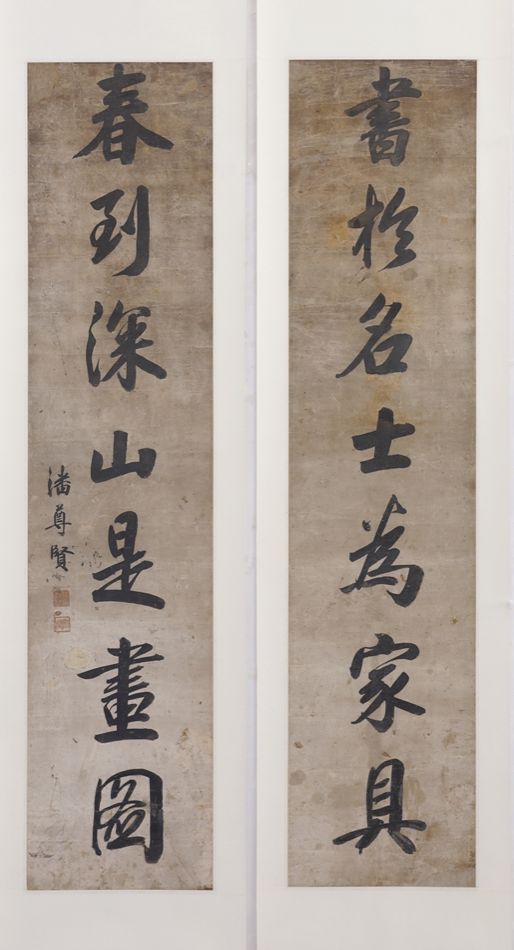 書於名士為家具
春到深山是畫圖
潘尊賢